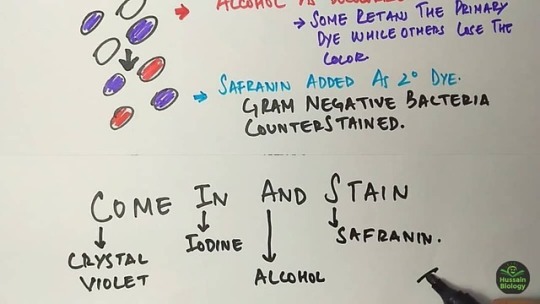 ALCOHOL AS
→ SOME RETAN THE PRIMARY
DYE WHILE OTHERS LOSE THE
COLOR
→ SAFRANIN ADDED AS 2° DYE.
GRAM NEGATIVE BACTERIA
COUNTERSTAINED.
COME IN AND STAIN
CRYSTAL
VIOLET
IODINE
ALCOHOL
SAFRANIN.
Hussain
Biology